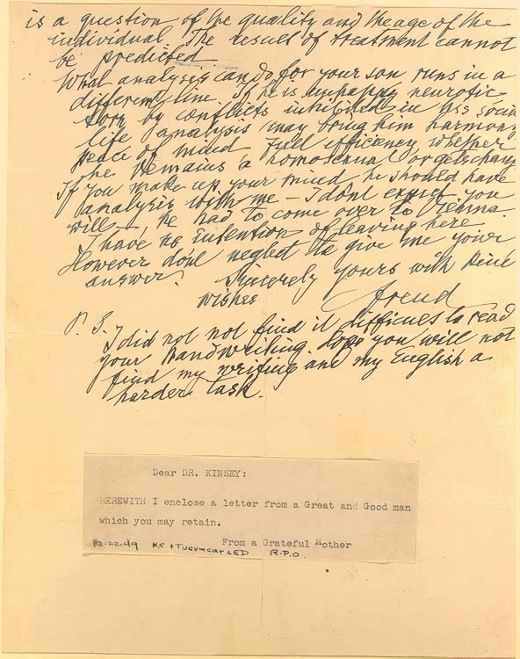 is a question of the quality and the age of the
individual. The result of treatment cannot
be predicted.
What analysis can do for your son runs in a
different line. If he is unhappy, neurotic,
torn by conflicts, inhibited in his social
life, analysis may bring him harmony,
peace of mind, full efficiency, whether
he remains a homosexual or gets chang
If you make up your mind he should have
analysis with me — I dont expect you
will —, he had to come over to Vienna.
I have no intention of leaving here.
However dont neglect to give me your
answer.
Sincerely yours with kind
wishes
Freud
P. S. I did not not find it difficult to read
your handwriting. Hope you will not
find my writing and my English a
harder task.
Dear DR. KINSEY:
HEREWITH I enclose a letter from a Great and Good man
which you may retain.
From a Grateful Mother
12.22.49 KC + Tucumcar LED R.P.O.